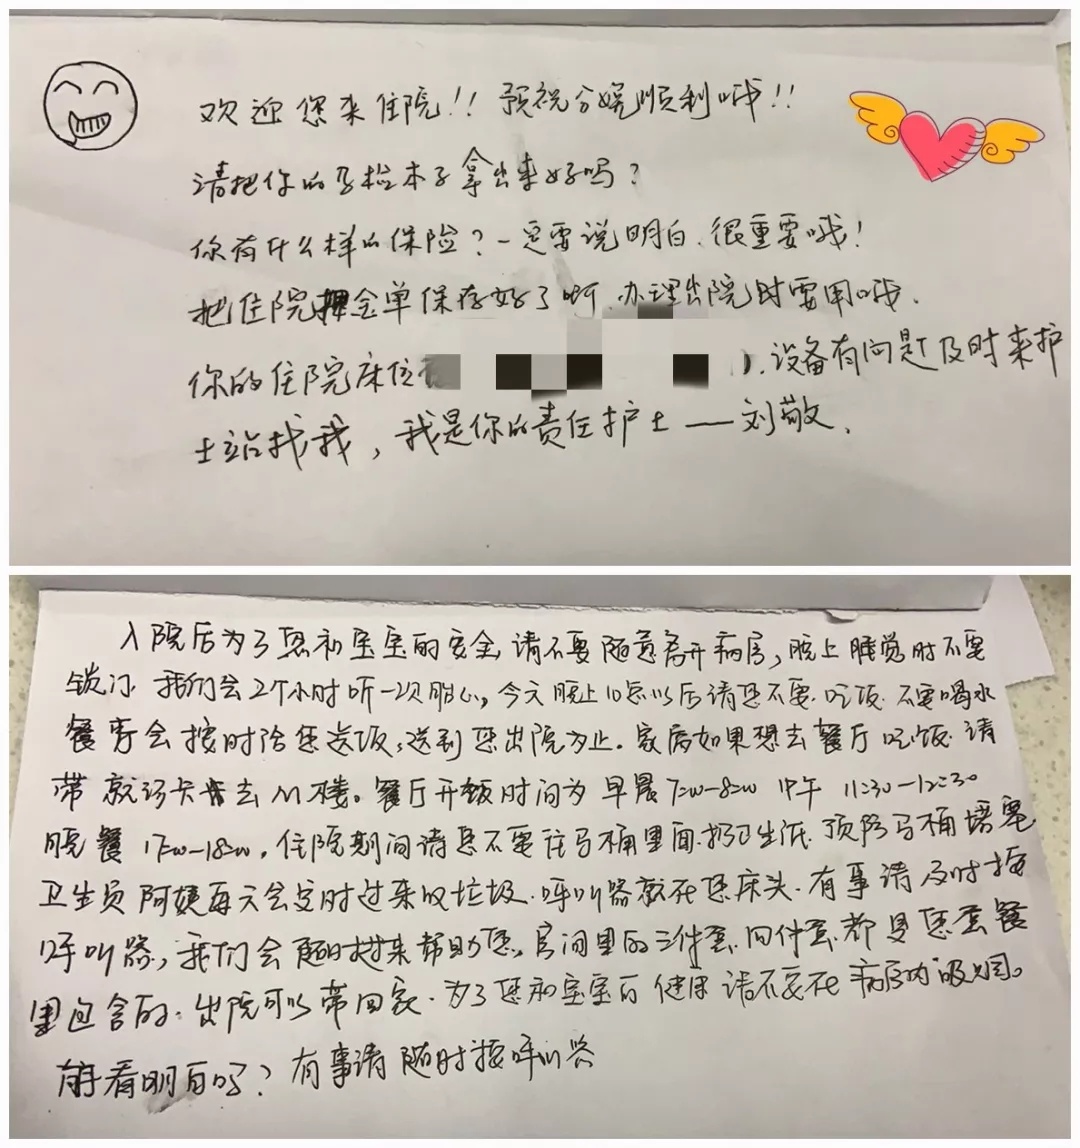 欢迎您来住院!! 预祝分娩顺利哦!!
请把你的孕检本子拿出来好吗?
你有什么样的保险?一定要说明白、很重要哦!
把住院押金单保存好了啊、办理出院时要用哦、
你的住院床位 )、设备有问题及时来护
士站找我,我是你的责任护士——刘敬、
入院后为了您和宝宝的安全、请不要随意离开病房,晚上睡觉时不要
锁门、我们会2个小时听一次胎心。今天晚上10点以后请您不要吃饭、不要喝水
餐厅会按时给您送饭,送到您出院为止。家属如果想去餐厅吃饭、请
带就诊卡去M楼。餐厅开饭时间为早晨7:00-8:00 中午 11:30-12:30
晚餐 17:00-18:00。住院期间请您不要往马桶里面扔卫生纸、预防马桶堵塞
卫生员阿姨每天会定时过来收垃圾、呼叫器就在您床头、有事请及时按
呼叫器,我们会随时过来帮助您。房间里的三件套、四件套、都是您套餐
里包含的、出院可以带回家、为了您和宝宝的健康请不要在病房内吸烟。
看明白吗?有事请随时按呼叫器